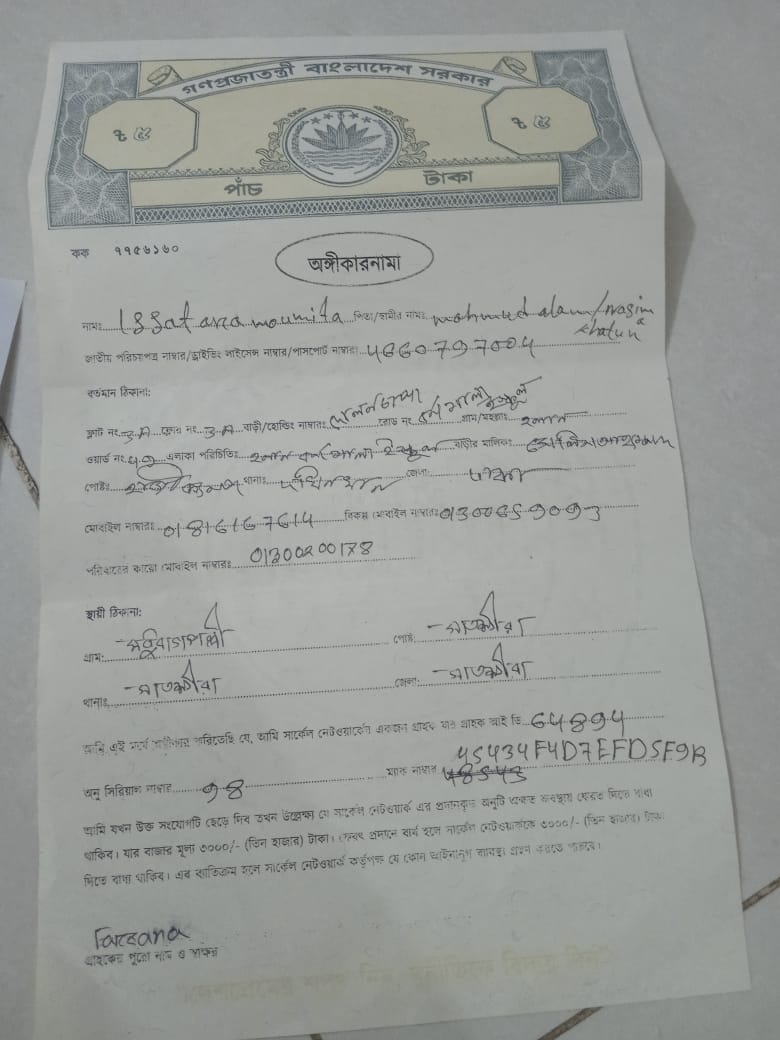 গণপ্রজাতন্ত্রী বাংলাদেশ সরকার
৳ ৫ ৳ ৫
পাঁচ টাকা
কক ৭৭৫৬১৬০
অঙ্গীকারনামা
নামঃ Issat ara moumita পিতা/স্বামীর নামঃ mohmud alam/nasim
khatun
জাতীয় পরিচয়পত্র নাম্বার/ড্রাইভিং লাইসেন্স নাম্বার/পাসপোর্ট নাম্বারঃ
বর্তমান ঠিকানা:
ফ্ল্যাট নং 3-A ফ্লোর নং 3-A বাড়ী/হোল্ডিং নাম্বারঃ দোলনচাঁপা রোড নং গ্রাম/মহল্লাঃ
ওয়ার্ড নং এলাকা পরিচিতিঃ বাড়ীর মালিকঃ
পোষ্টঃ থানাঃ দক্ষিনখান জেলাঃ ঢাকা
মোবাইল নাম্বারঃ 01816167614 বিকল্প মোবাইল নাম্বারঃ
পরিবারের কারো মোবাইল নাম্বারঃ 01300200178
স্থায়ী ঠিকানা:
গ্রামঃ পোষ্টঃ সাতক্ষীরা
থানাঃ সাতক্ষীরা জেলা: সাতক্ষীরা
আমি এই মর্মে অঙ্গিকার করিতেছি যে, আমি সার্কেল নেটওয়ার্কের একজন গ্রাহক যার গ্রাহক আই ডি 64894
অনু সিরিয়াল নাম্বার ১৪ ম্যাক নাম্বার 45434F4D7EFD5F9B
আমি যখন উক্ত সংযোগটি ছেড়ে দিব তখন উল্লেখ্য যে সার্কেল নেটওয়ার্ক এর প্রদানকৃত অনুটি অক্ষত অবস্থায় ফেরত দিতে বাধ্য
থাকিব। যার বাজার মূল্য ৩০০০/- (তিন হাজার) টাকা। ফেরৎ প্রদানে ব্যর্থ হলে সার্কেল নেটওয়ার্ককে ৩০০০/- (তিন হাজার) টাকা
দিতে বাধ্য থাকিব। এর ব্যতিক্রম হলে সার্কেল নেটওয়ার্ক কর্তৃপক্ষ যে কোন আইনানুগ ব্যবস্থা গ্রহন করতে পারবে।
Farzana
গ্রাহকের পুরো নাম ও স্বাক্ষর